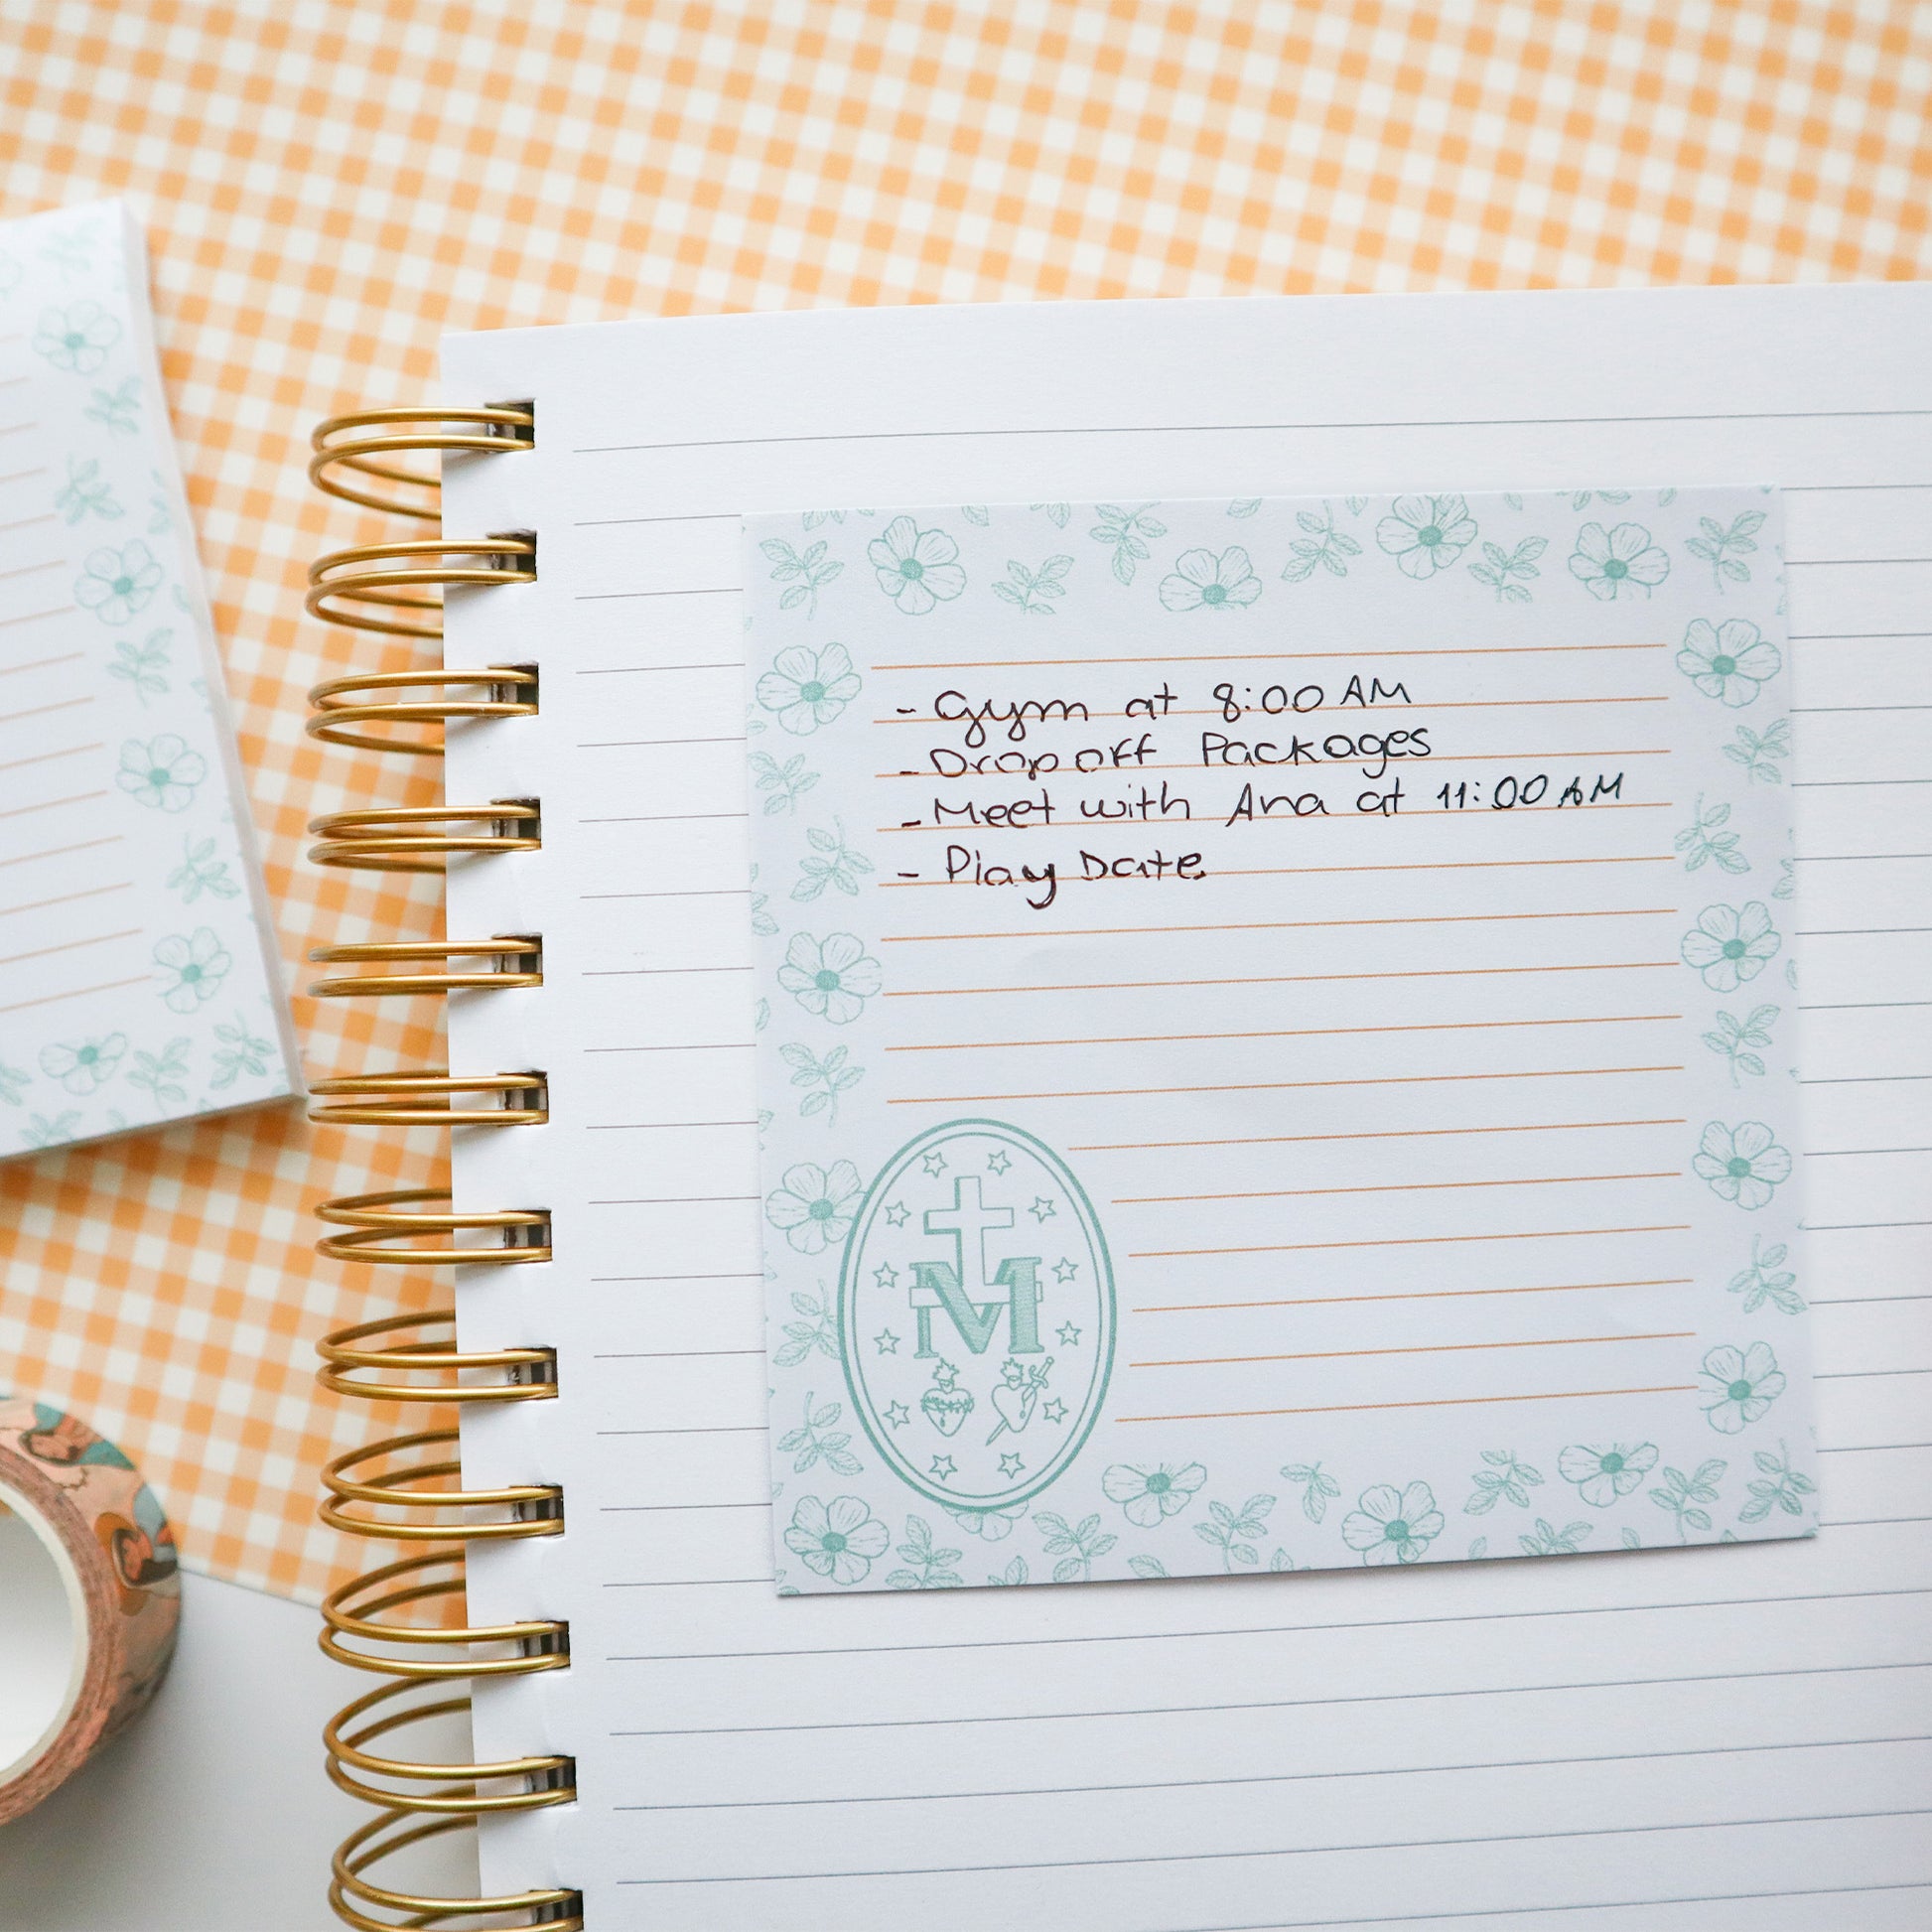 - Gym at 8:00 AM
- Drop off Packages
- Meet with Ana at 11:00 AM
- Play Date
M